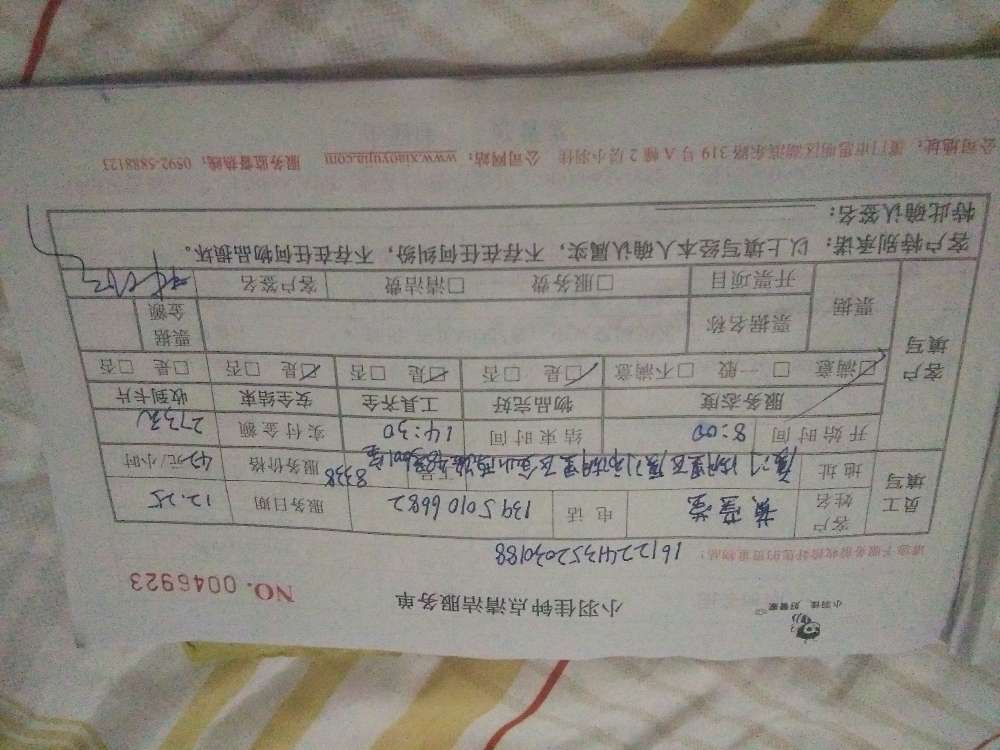 小羽佳 好管家
小羽佳钟点清洁服务单
NO. 0046923
请您于服务前收捡好您的贵重物品!
161224435203088
员工填写
客户姓名 电话 13950106682 服务日期 12.25
地址 工号 8338 服务价格 42元/小时
开始时间 8:00 结束时间 14:30 实付金额 273元
客户填写
服务态度 物品完好 工具齐全 安全结束 收到卡片
☑满意 □一般 □不满意 ☑是 □否 ☑是 □否 ☑是 □否 □是 □否
票据 票据名称 票据金额
开票项目 □服务费 □清洁费 客户签名
客户特别承诺:以上填写经本人确认属实,不存在任何纠纷,不存在任何物品损坏。
特此确认签名:
公司地址:厦门市思明区湖滨东路319号A幢2层小羽佳 公司网站:www.xiaoyujia.com 服务监督热线:0592-5888123